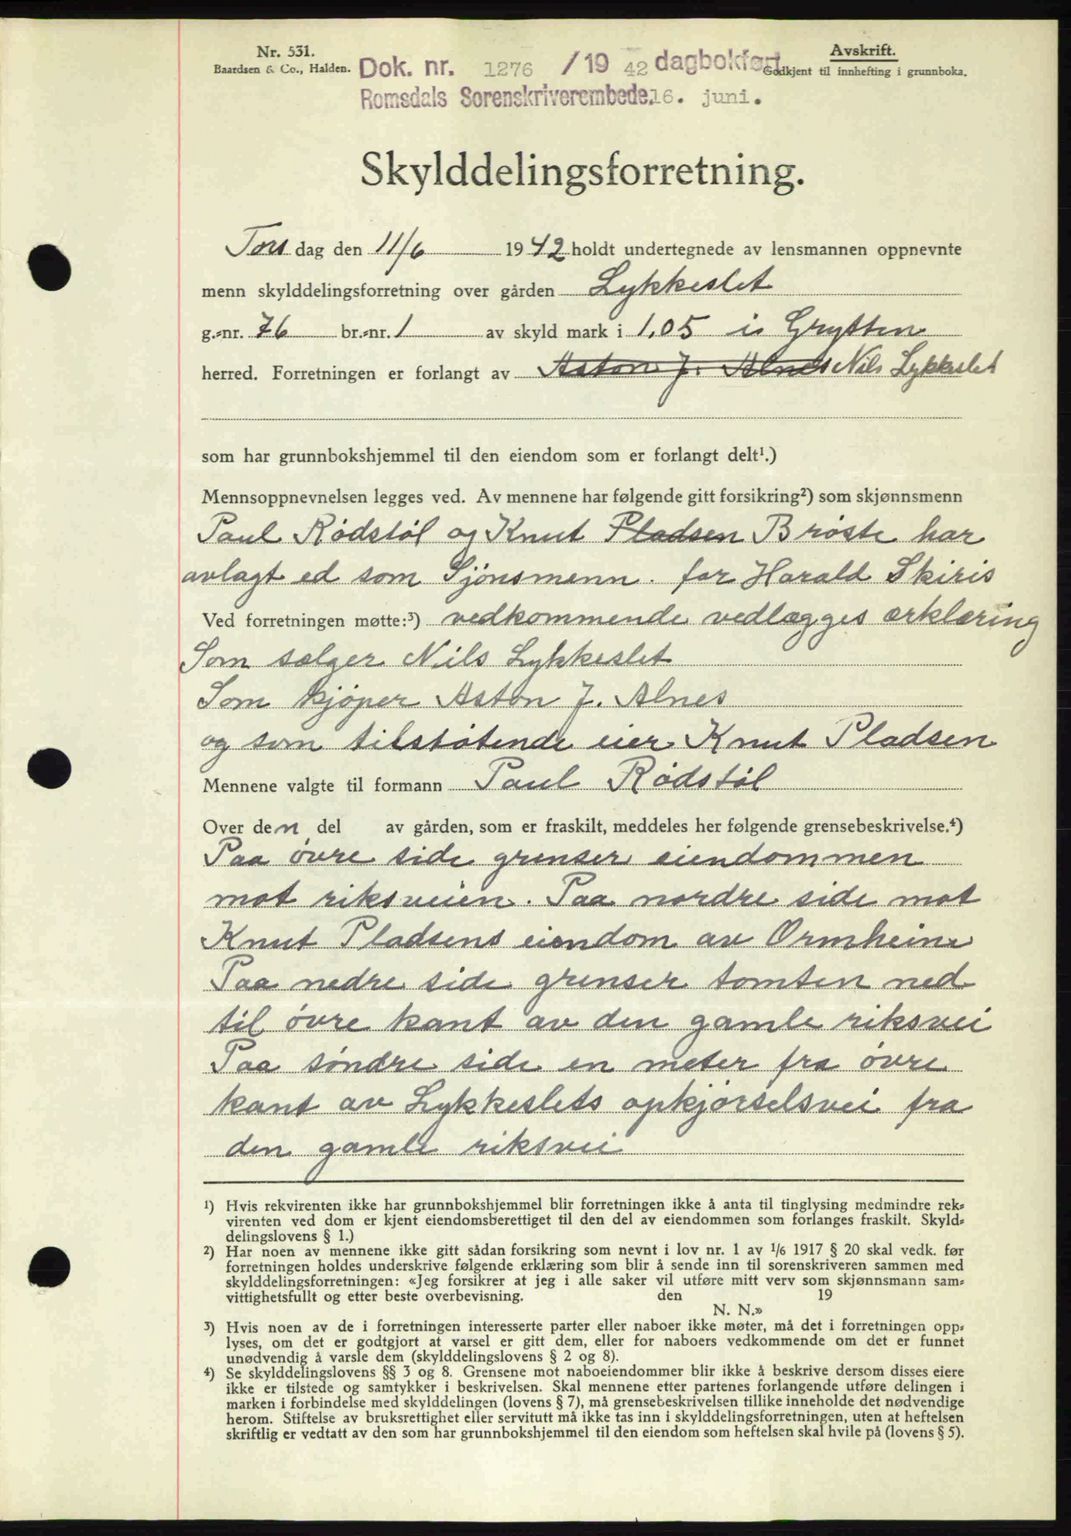 Nr. 531.
Baardsen & Co., Halden.
Dok. nr. 1276 / 19 42 dagbokført
Romsdals Sorenskriverembede. 16. juni.
Avskrift.
Godkjent til innhefting i grunnboka.
Skylddelingsforretning.
Torsdag den 11/6 1942 holdt undertegnede av lensmannen oppnevnte
menn skylddelingsforretning over gården Lykkeslet
g.-nr. 76 br.-nr. 1 av skyld mark i 1.05 i Grytten
herred. Forretningen er forlangt av Aston J. Alnes Nils Lykkeslet
som har grunnbokshjemmel til den eiendom som er forlangt delt¹.)
Mennsoppnevnelsen legges ved. Av mennene har følgende gitt forsikring²) som skjønnsmenn
Paul Rödstöl og Knut Pladsen Brøste har
avlagt ed som Sjönsmenn. for Harald Skiris
Ved forretningen møtte:³) vedkommende vedlægges ærklæring
Som sælger Nils Lykkeslet
Som kjöper Aston J. Alnes
og som tilstötende eier Knut Pladsen
Mennene valgte til formann Paul Rödstöl
Over den del av gården, som er fraskilt, meddeles her følgende grensebeskrivelse.⁴)
Paa övre side grenser eiendommen
mot riksveien. Paa nordre side mot
Knut Pladsens eiendom av Ormheim
Paa nedre side grenser tomten ned
til övre kant av den gamle riksvei
Paa söndre side en meter fra övre
kant av Lykkeslets opkjörselsvei fra
den gamle riksvei
¹) Hvis rekvirenten ikke har grunnbokshjemmel blir forretningen ikke å anta til tinglysing medmindre rek-
virenten ved dom er kjent eiendomsberettiget til den del av eiendommen som forlanges fraskilt. Skyld-
delingslovens § 1.)
²) Har noen av mennene ikke gitt sådan forsikring som nevnt i lov nr. 1 av ¹/6 1917 § 20 skal vedk. før
forretningen holdes underskrive følgende erklæring som blir å sende inn til sorenskriveren sammen med
skylddelingsforretningen: «Jeg forsikrer at jeg i alle saker vil utføre mitt verv som skjønnsmann sam-
vittighetsfullt og etter beste overbevisning. den 19
N. N.»
³) Hvis noen av de i forretningen interesserte parter eller naboer ikke møter, må det i forretningen opp-
lyses, om det er godtgjort at varsel er gitt dem, eller for naboers vedkommende om det er funnet
unødvendig å varsle dem (skylddelingslovens § 2 og 8).
⁴) Se skylddelingslovens §§ 3 og 8. Grensene mot naboeiendommer blir ikke å beskrive dersom disses eiere
ikke er tilstede og samtykker i beskrivelsen. Skal mennene etter partenes forlangende utføre delingen i
marken i forbindelse med skylddelingen (lovens § 7), må grensebeskrivelsen tillike inneholde det nødvendige
herom. Stiftelse av bruksrettighet eller servitutt må ikke tas inn i skylddelingsforretningen, uten at heftelsen
skriftlig er vedtatt av den som har grunnbokshjemmel til den eiendom som heftelsen skal hvile på (lovens § 5).